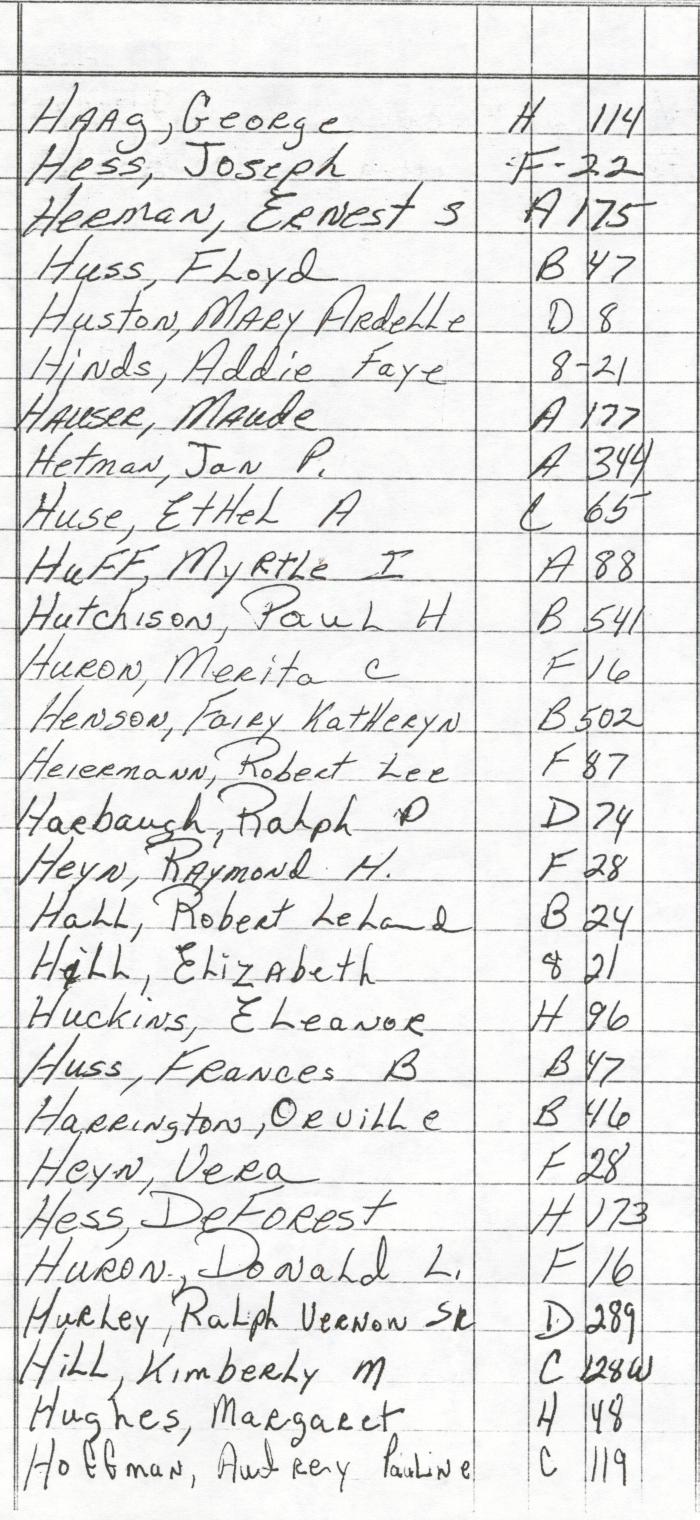 Haag, George H 114
Hess, Joseph F-22
Herman, Ernest S A 175
Huss, Floyd B 47
Huston, Mary Ardelle D 8
Hinds, Addie Faye 8-21
Hauser, Maude A 177
Hetman, Jan P. A 344
Huse, Ethel A C 65
Huff, Myrtle I A 88
Hutchison, Paul H B 541
Huron, Merita C F 16
Henson, Fairy Katheryn B 502
Heiermann, Robert Lee F 87
Harbaugh, Ralph P D 74
Heyn, Raymond H. F 28
Hall, Robert Leland B 24
Hill, Elizabeth 8 21
Huckins, Eleanor H 96
Huss, Frances B B 47
Harrington, Orville B 46
Heyn, Vera F 28
Hess, DeForest H 173
Huron, Donald L. F 16
Hurley, Ralph Vernon Sr D 289
Hill, Kimberly M C 128W
Hughes, Margaret H 48
Hoffman, Audrey Pauline C 119